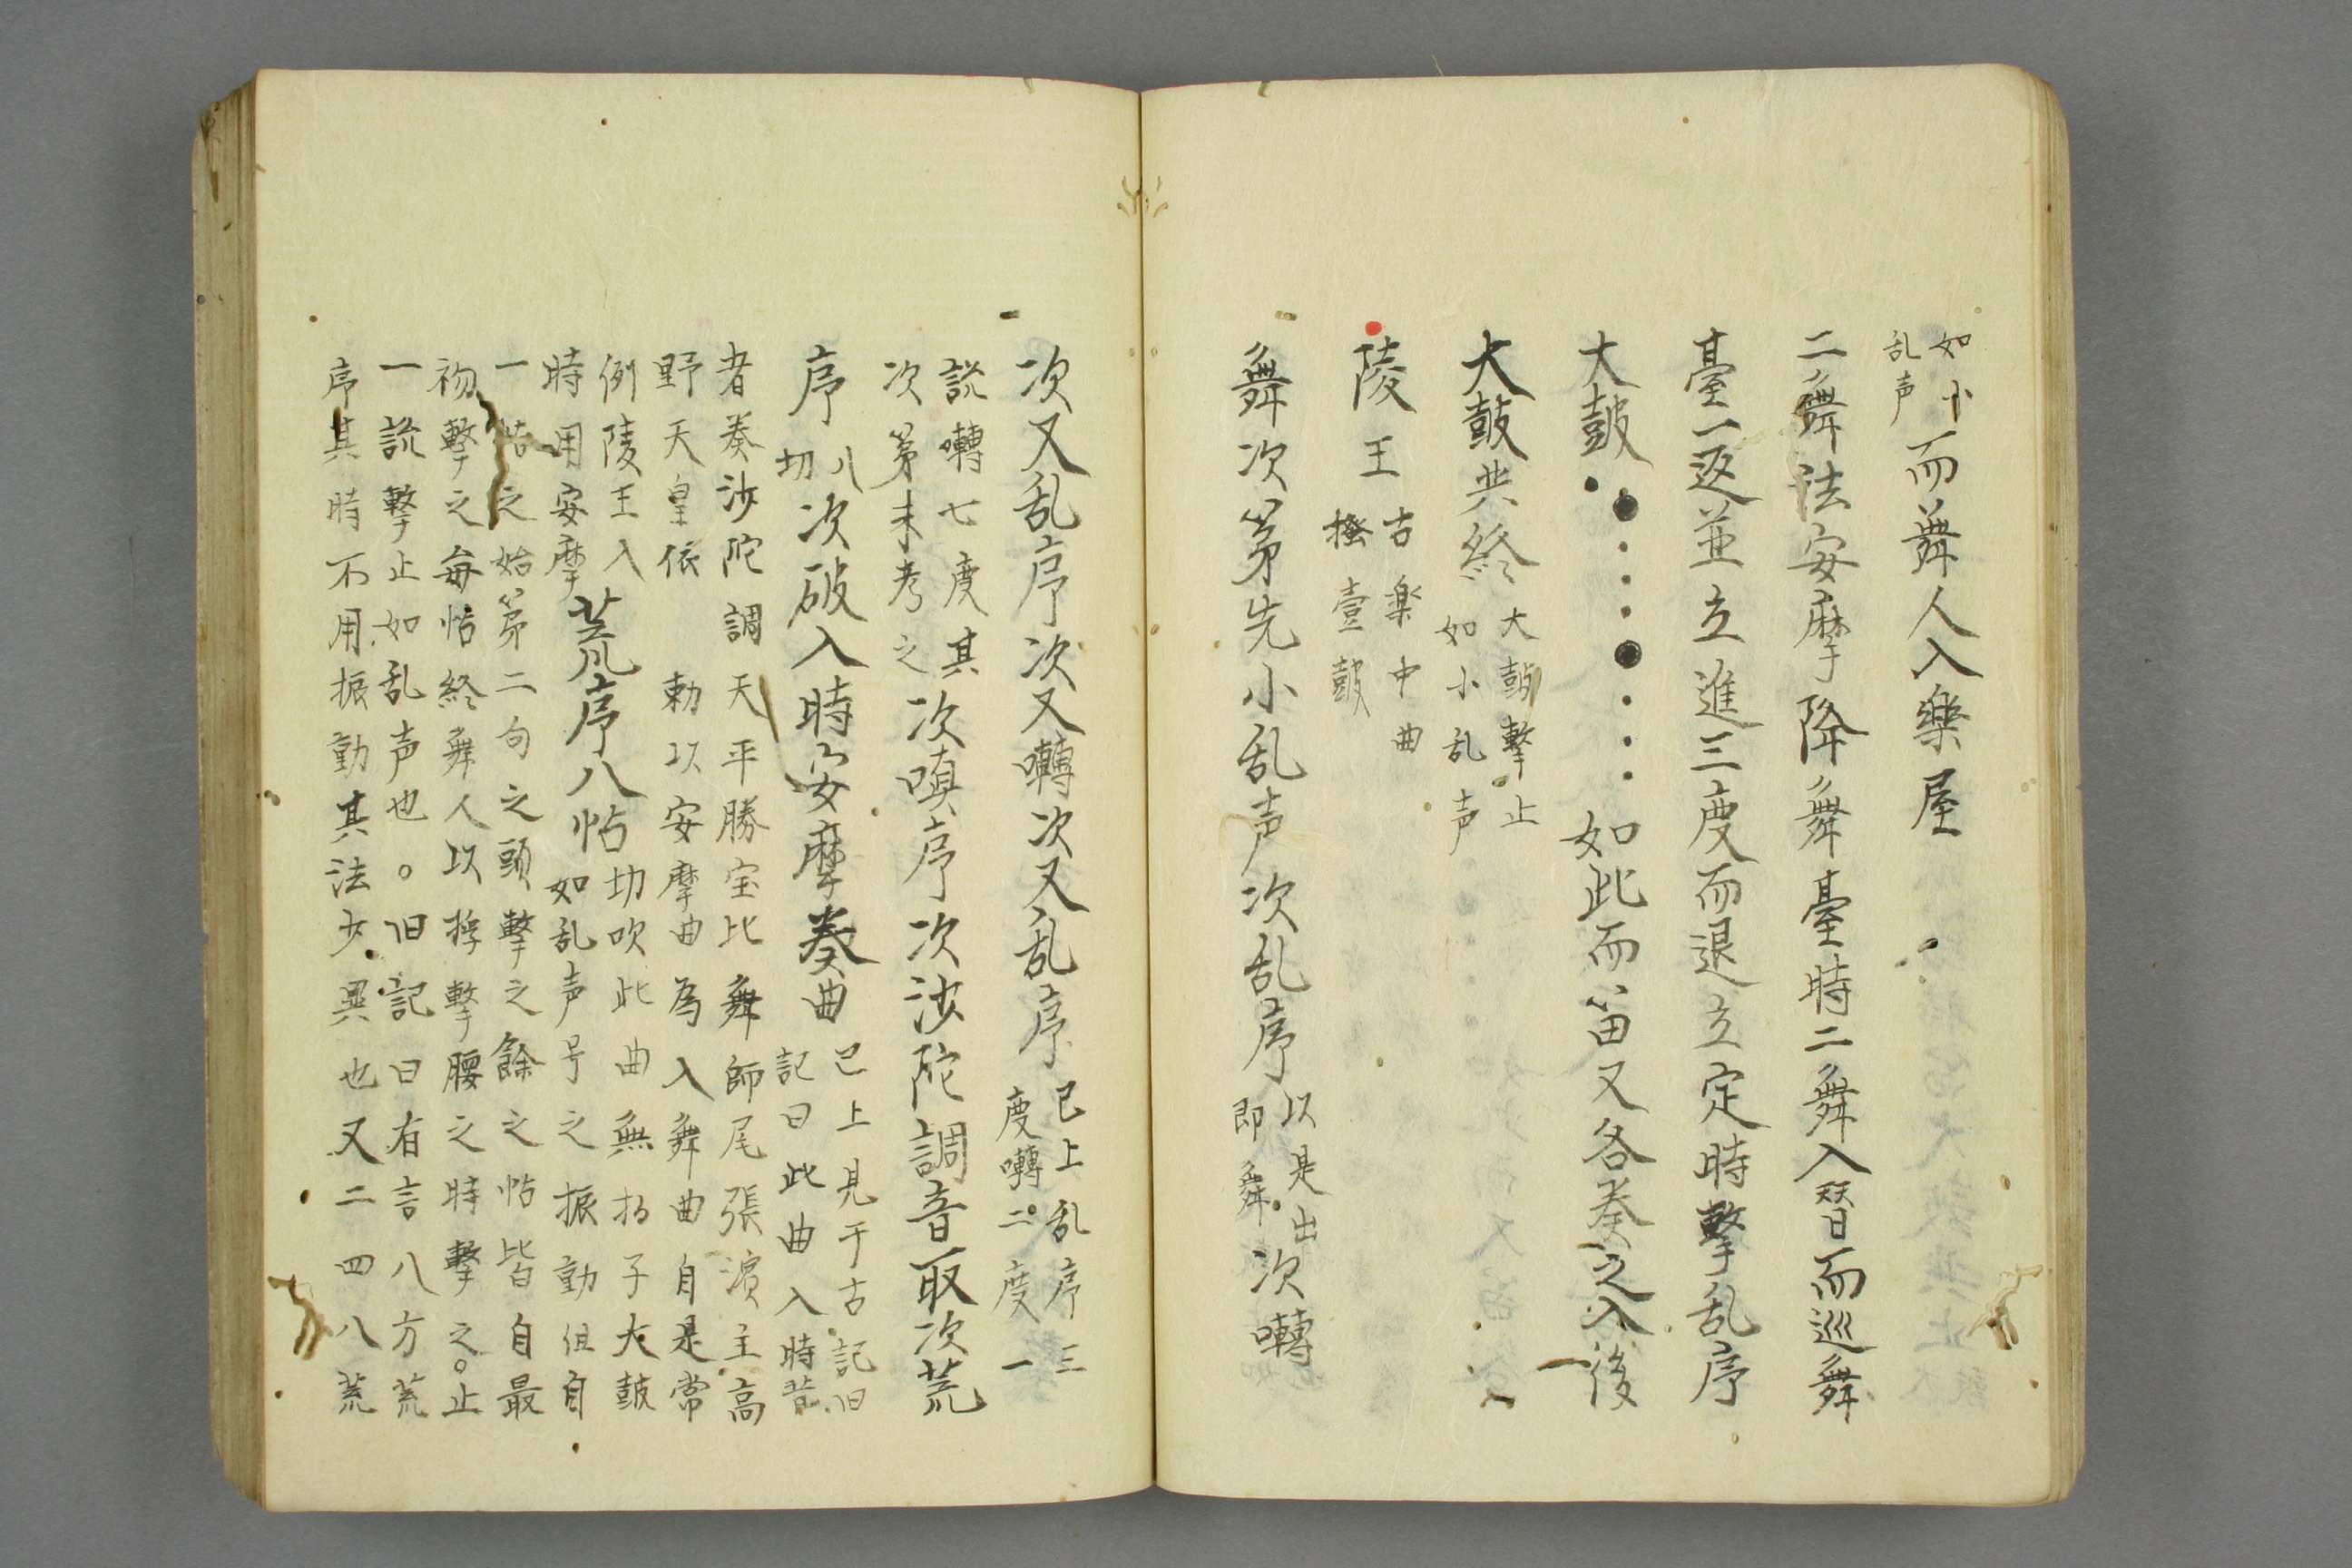 如小
乱声
而舞人入樂屋
二舞法安摩降舞臺時二舞入替而巡舞
臺一返並立進三度而退立定時擊乱序
大鼓
如此而笛又各奏之入後
大鼓共終
大鼓擊止
如小乱声
陵王
古楽中曲
搔壹鼓
舞次第先小乱声次乱序
以是出
即舞
次囀
次又乱序次又囀次又乱序
已上乱序三
度囀二度一
説囀七度其
次第未考之
次嗔序次沙陀調音取次荒
序
八
切
次破入時安摩奏曲
已上見于古記旧
記曰此曲入時昔
者奏沙陀調天平勝宝比舞師尾張濱主高
野天皇依勅以安摩曲為入舞曲自是常
例陵王入
時用安摩
荒序八帖
切吹此曲無拍子大鼓
如乱声号之振動但自
一帖之始第二句之頭擊之餘之帖皆自最
初擊之每帖終舞人以桴擊腰之時擊之。止
一説擊止如乱声也。旧記曰有言八方荒
序其時不用振動其法少異也又二四八荒